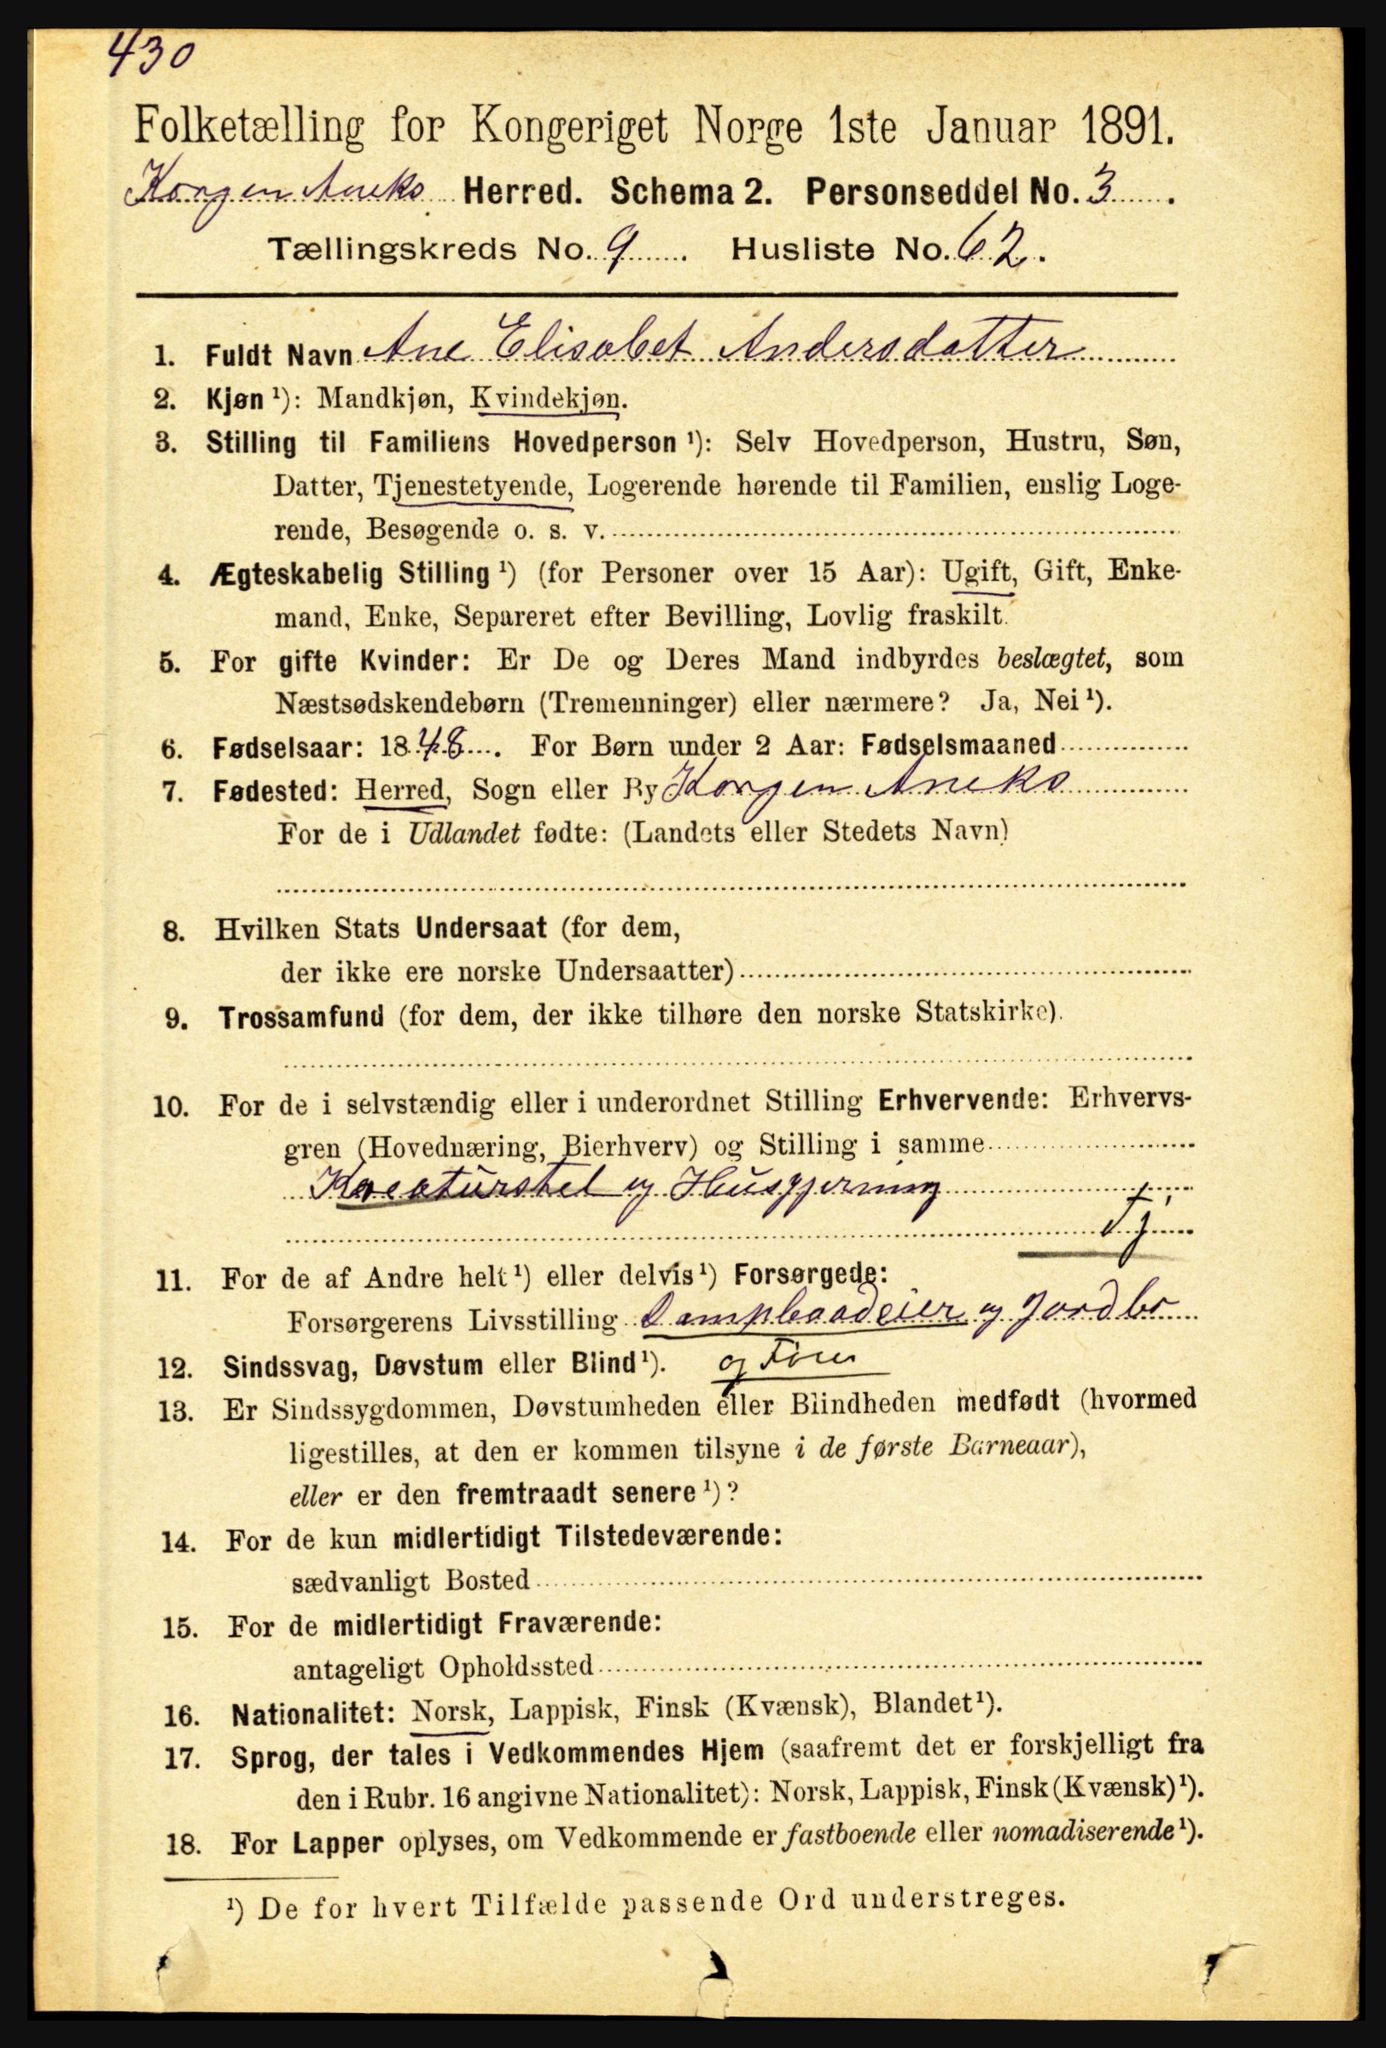 430
Folketælling for Kongeriget Norge 1ste Januar 1891.
Korgen Aneks Herred. Schema 2. Personseddel No. 3.
Tællingskreds No. 9. Husliste No. 62.
1. Fuldt Navn Ane Elisabet Andersdatter
2. Kjøn ¹): Mandkjøn, Kvindekjøn.
3. Stilling til Familiens Hovedperson ¹): Selv Hovedperson, Hustru, Søn,
Datter, Tjenestetyende, Logerende hørende til Familien, enslig Loge-
rende, Besøgende o. s. v.
4. Ægteskabelig Stilling ¹) (for Personer over 15 Aar): Ugift, Gift, Enke-
mand, Enke, Separeret efter Bevilling, Lovlig fraskilt.
5. For gifte Kvinder: Er De og Deres Mand indbyrdes beslægtet, som
Næstsødskendebørn (Tremenninger) eller nærmere? Ja, Nei ¹).
6. Fødselsaar: 1848. For Børn under 2 Aar: Fødselsmaaned
7. Fødested: Herred, Sogn eller By Korgen Aneks
For de i Udlandet fødte: (Landets eller Stedets Navn)
8. Hvilken Stats Undersaat (for dem,
der ikke ere norske Undersaatter)
9. Trossamfund (for dem, der ikke tilhøre den norske Statskirke).
10. For de i selvstændig eller i underordnet Stilling Erhvervende: Erhvervs-
gren (Hovednæring, Bierhverv) og Stilling i samme
Kreaturstel og Husgjerning
tj.
11. For de af Andre helt ¹) eller delvis ¹) Forsørgede:
Forsørgerens Livsstilling Dampbaadeier og Jordbr
12. Sindssvag, Døvstum eller Blind ¹). og Fører
13. Er Sindssygdommen, Døvstumheden eller Blindheden medfødt (hvormed
ligestilles, at den er kommen tilsyne i de første Barneaar),
eller er den fremtraadt senere ¹)?
14. For de kun midlertidigt Tilstedeværende:
sædvanligt Bosted
15. For de midlertidigt Fraværende:
antageligt Opholdssted
16. Nationalitet: Norsk, Lappisk, Finsk (Kvænsk), Blandet ¹).
17. Sprog, der tales i Vedkommendes Hjem (saafremt det er forskjelligt fra
den i Rubr. 16 angivne Nationalitet): Norsk, Lappisk, Finsk (Kvænsk) ¹).
18. For Lapper oplyses, om Vedkommende er fastboende eller nomadiserende ¹).
¹) De for hvert Tilfælde passende Ord understreges.